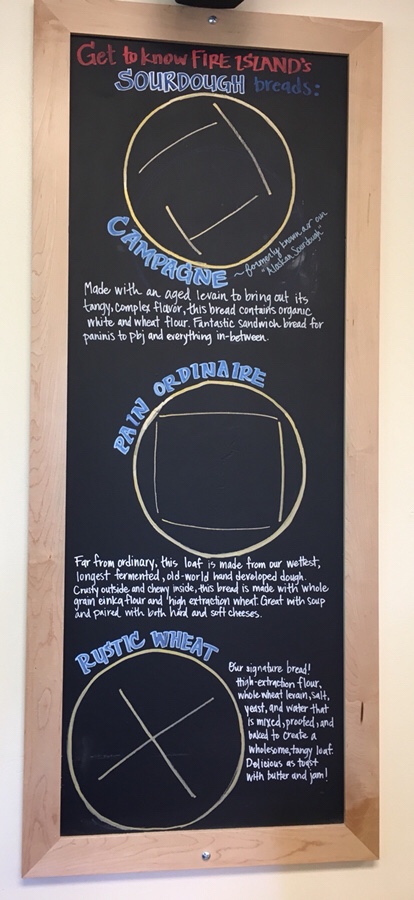 Get to know FIRE ISLAND's
SOURDOUGH breads:
CAMPAGNE
~ formerly known as our
"Alaskan Sourdough"
Made with an aged levain to bring out its
tangy, complex flavor, this bread contains organic
white and wheat flour. Fantastic sandwich bread for
paninis to pbj and everything in-between.
PAIN ORDINAIRE
Far from ordinary, this loaf is made from our wettest,
longest fermented, old-world hand developed dough.
Crusty outside and chewy inside, this bread is made with whole
grain einka flour and high extraction wheat. Great with soup
and paired with both hard and soft cheeses.
RUSTIC WHEAT
Our signature bread!
High-extraction flour,
whole wheat levain, salt,
yeast, and water that
is mixed, proofed, and
baked to create a
wholesome, tangy loaf.
Delicious as toast
with butter and jam!